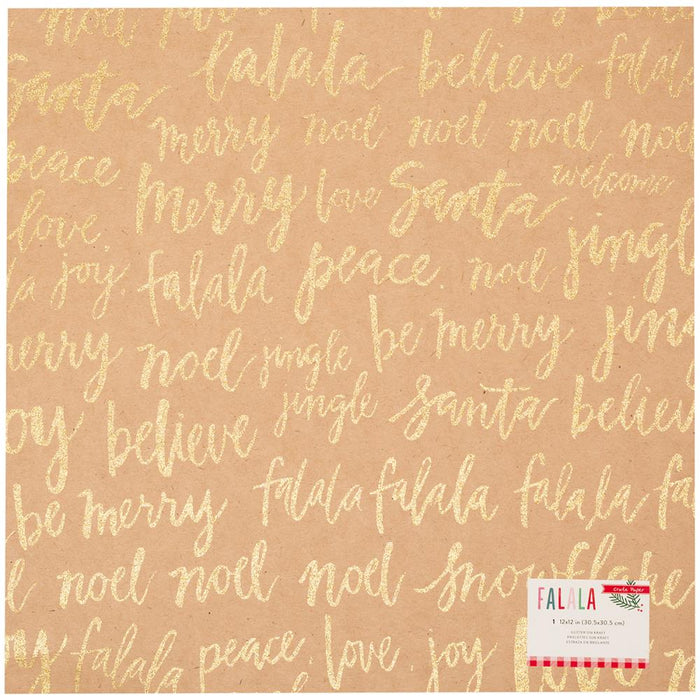 noel noel
falala believe falala
Santa
merry noel noel noel noel
peace merry love Santa welcome
love, jingle
joy, falala peace. noel
merry noel jingle be merry jing
jingle santa believe
joy believe
be merry falala falala falala fa
noel noel noel snowflake
falala peace. love. joy love
FALALA
Crate Paper
1 12x12 in (30.5x30.5 cm)
GLITTER ON KRAFT
PAILLETTES SUR KRAFT